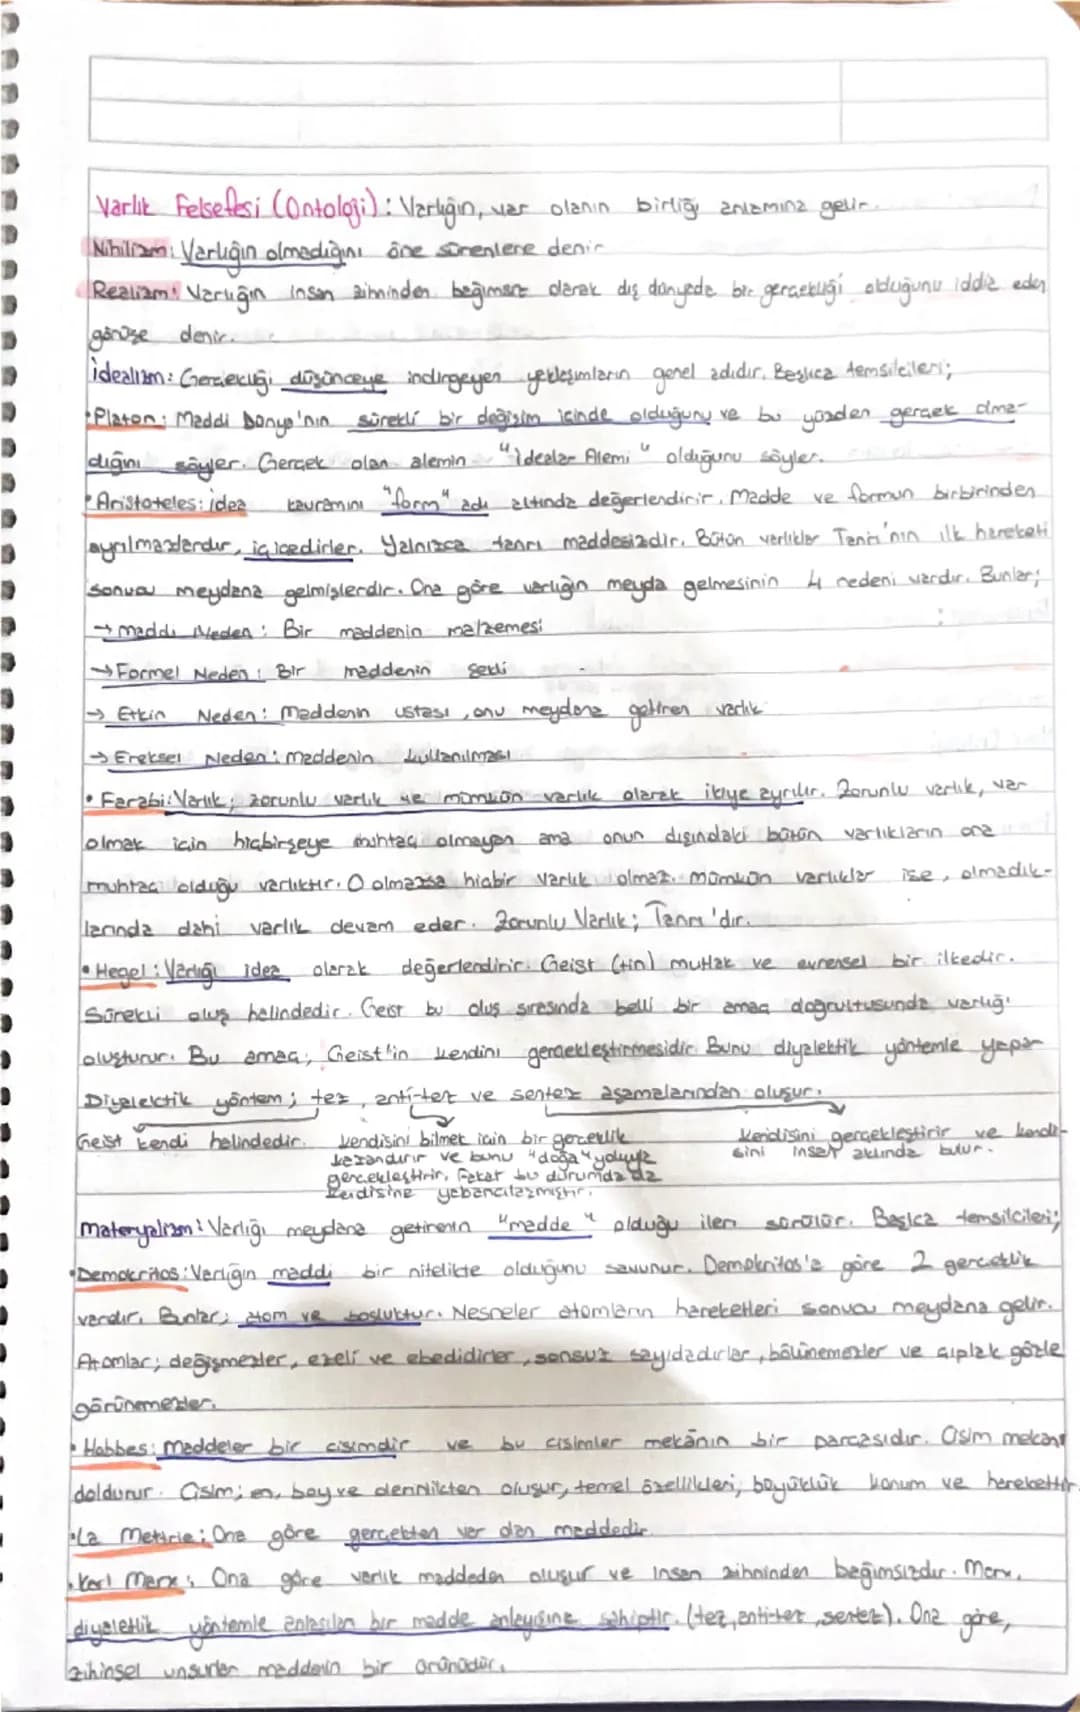 Varlık Felsefesi (Ontoloji): Varlığın, var olanın birliği anlamına gelir.
Nihilizm: Varlığın olmadığını öne sürenlere denir
Realizm: Varlığın insan zihninden bağımsız olarak dış dünyada bir gerçekliği olduğunu iddia eden
görüşe denir.
İdealizm: Gerçekliği düşünceye indirgeyen yaklaşımların genel adıdır. Başlıca temsilcileri;
• Platon: Maddi Dünya'nın sürekli bir değişim içinde olduğunu ve bu yüzden gerçek olma-
dığını söyler. Gerçek olan alemin "idealar Alemi" olduğunu söyler.
• Aristoteles: idea kavramını "form" adı altında değerlendirir. Madde ve formun birbirinden
ayrılmazlardır, iç içedirler. Yalnızca tanrı maddesizdir. Bütün varlıklar Tanrı'nın ilk hareketi
sonucu meydana gelmişlerdir. Ona göre varlığın meyda gelmesinin 4 nedeni vardır. Bunlar;
→ Maddi Neden: Bir maddenin malzemesi
→ Formel Neden: Bir maddenin şekli
→ Etkin Neden: Maddenin ustası, onu meydana getiren varlık
→ Ereksel Neden: Maddenin kullanılması
• Farabi: Varlık; zorunlu varlık ve mümkün varlık olarak ikiye ayrılır. Zorunlu varlık, var
olmak için hiçbirşeye muhtaç olmayan ama onun dışındaki bütün varlıkların ona
muhtaç olduğu varlıktır. O olmazsa hiçbir varlık olmaz. Mümkün varlıklar ise, olmadık-
larında dahi varlık devam eder. Zorunlu Varlık; Tanrı'dır.
• Hegel: Varlığı idea olarak değerlendirir. Geist (tin) mutlak ve evrensel bir ilkedir.
Sürekli oluş halindedir. Geist bu oluş sırasında belli bir amaç doğrultusunda varlığı
oluşturur. Bu amaç; Geist'in kendini gerçekleştirmesidir. Bunu diyalektik yöntemle yapar
Diyalektik yöntem; tez, anti-tez ve sentez aşamalarından oluşur.
Geist kendi halindedir. kendisini bilmek için bir gerçeklik kendisini gerçekleştirir ve kendi-
kazandırır ve bunu "doğa" yoluyla sini insan aklında bulur.
gerçekleştirir. Fakat bu durumda da
kendisine yabancılaşmıştır.
Materyalizm: Varlığı meydana getirenin "madde" olduğu ileri sürülür. Başlıca temsilcileri;
• Demokritos: Varlığın maddi bir nitelikte olduğunu savunur. Demokritos'a göre 2 gerçeklik
vardır. Bunlar; atom ve boşluktur. Nesneler atomların hareketleri sonucu meydana gelir.
Atomlar; değişmezler, ezeli ve ebedidirler, sonsuz sayıdadırlar, bölünemezler ve çıplak gözle
görünemezler.
• Hobbes: Maddeler bir cisimdir ve bu cisimler mekânın bir parçasıdır. Cisim mekanı
doldurur. Cisim; en, boy ve derinlikten oluşur, temel özellikleri; büyüklük konum ve harekettir.
• La Metirie: Ona göre gerçekten var olan maddedir
• Karl Marx: Ona göre varlık maddeden oluşur ve insan zihninden bağımsızdır. Marx,
diyalektik yöntemle anlaşılan bir madde anlayışına sahiptir. (tez, anti-tez, sentez). Ona göre,
zihinsel unsurlar maddenin bir ürünüdür.